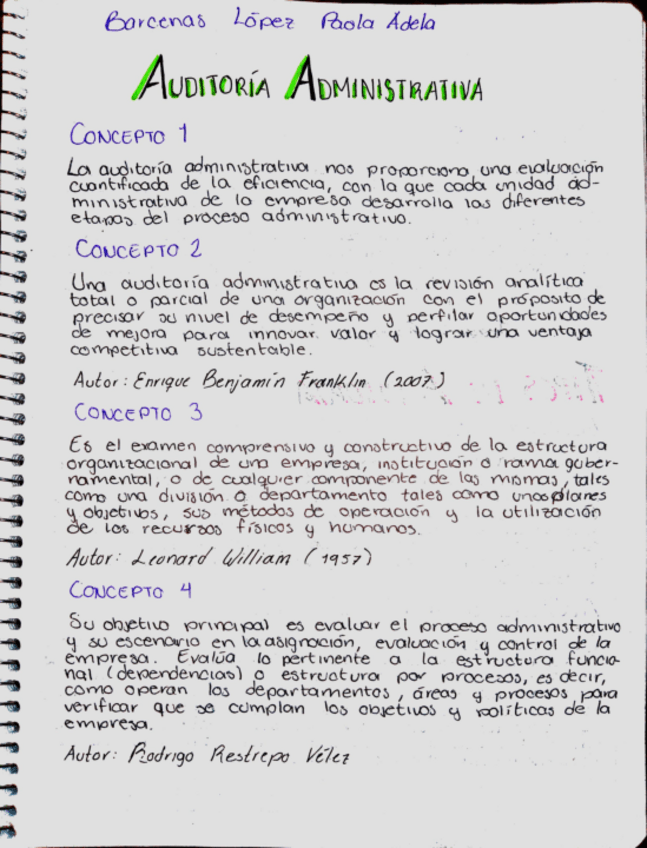 Barcenas López Paola Adela
AUDITORÍA ADMINISTRATIVA
CONCEPTO 1
La auditoría administrativa nos proporciona una evaluación
cuantificada de la eficiencia, con la que cada unidad ad-
ministrativa de la empresa desarrolla las diferentes
etapas del proceso administrativo.
CONCEPTO 2
Una auditoría administrativa es la revisión analítica
total o parcial de una organización con el próposito de
precisar su nivel de desempeño y perfilar oportunidades
de mejora para innovar valor y lograr una ventaja
competitiva sustentable.
Autor: Enrique Benjamín Franklin (2007)
CONCEPTO 3
Es el examen comprensivo y constructivo de la estructura
organizacional de una empresa, institución o rama guber-
namental, o de cualquier componente de las mismas, tales
como una división o departamento tales como unos planes
y objetivos, sus métodos de operación y la utilización
de los recursos físicos y humanos.
Autor: Leonard William (1957)
CONCEPTO 4
Su objetivo principal es evaluar el proceso administrativo
y su escenario en la asignación, evaluación y control de la
empresa. Evalúa lo pertinente a la estructura funcio-
nal (dependencias) o estructura por procesos, es decir,
como operan los departamentos, áreas y procesos para
verificar que se cumplan los objetivos y políticas de la
empresa.
Autor: Rodrigo Restrepo Vélez